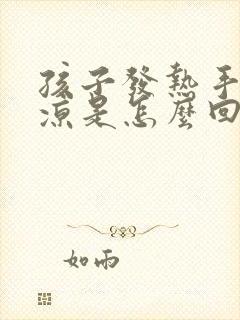 孩子發熱手
涼是怎麼回
如雨